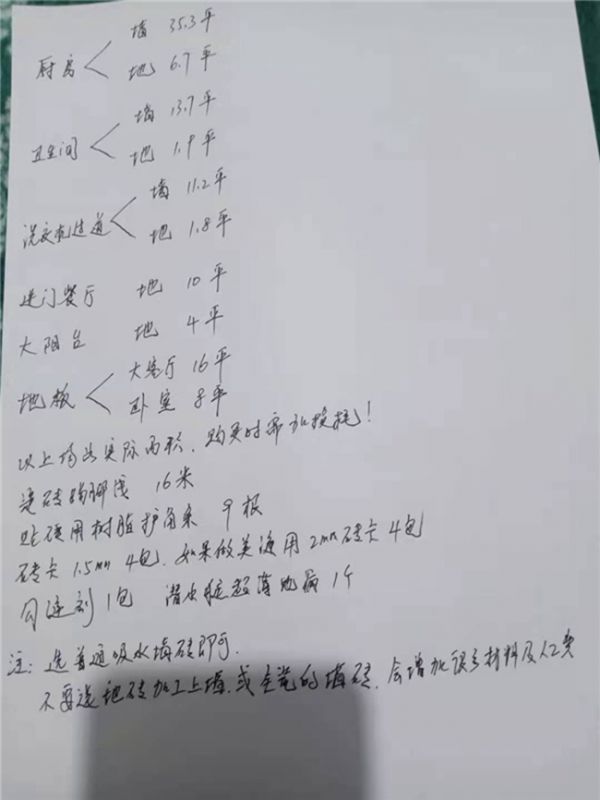 厨房 墙 35.3平
地 6.7平
卫生间 墙 13.7平
地 1.9平
洗衣机过道 墙 11.2平
地 1.8平
进门餐厅 地 10平
大阳台 地 4平
地板 大客厅 16平
卧室 8平
以上均为实际面积，购买时需加损耗！
瓷砖踢脚线 16米
贴砖用树脂护角条 9根
砖卡1.5mm 4包．如果做美缝用2mm砖卡4包
勾缝剂1包 潜水艇超薄地漏1个
注：选普通吸水墙砖即可．
不要选地砖加工上墙．或全瓷的墙砖．会增加很多材料及人工费